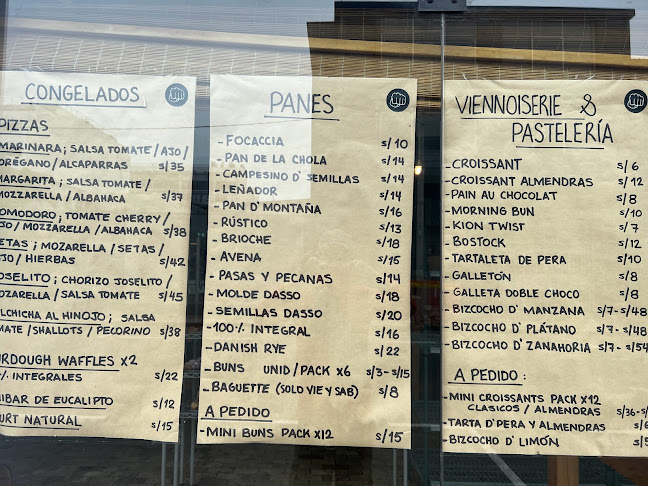 CONGELADOS
PIZZAS
MARINARA; SALSA TOMATE/AJO/
ORÉGANO/ALCAPARRAS S/35
MARGARITA; SALSA TOMATE/
MOZZARELLA/ALBAHACA S/37
POMODORO; TOMATE CHERRY/
AJO/MOZZARELLA/ALBAHACA S/38
SETAS; MOZARELLA/SETAS/
AJO/HIERBAS S/42
JOSELITO; CHORIZO JOSELITO/
MOZARELLA/SALSA TOMATE S/45
SALCHICHA AL HINOJO; SALSA
TOMATE/SHALLOTS/PECORINO S/38
SOURDOUGH WAFFLES X2
% INTEGRALES S/22
DE EUCALIPTO S/12
NATURAL S/15
PANES
- FOCACCIA S/10
- PAN DE LA CHOLA S/14
- CAMPESINO D' SEMILLAS S/14
- LEÑADOR S/14
- PAN D' MONTAÑA S/16
- RÚSTICO S/13
- BRIOCHE S/18
- AVENA S/15
- PASAS Y PECANAS S/14
- MOLDE DASSO S/18
- SEMILLAS DASSO S/20
- 100% INTEGRAL S/16
- DANISH RYE S/22
- BUNS UNID/PACK X6 S/3-S/15
- BAGUETTE (SOLO VIE Y SAB) S/8
A PEDIDO
- MINI BUNS PACK X12 S/15
VIENNOISERIE &
PASTELERÍA
- CROISSANT S/6
- CROISSANT ALMENDRAS S/12
- PAIN AU CHOCOLAT S/8
- MORNING BUN S/10
- KION TWIST S/7
- BOSTOCK S/12
- TARTALETA DE PERA S/10
- GALLETÓN S/8
- GALLETA DOBLE CHOCO S/8
- BIZCOCHO D' MANZANA S/7-S/48
- BIZCOCHO D' PLÁTANO S/7-S/48
- BIZCOCHO D' ZANAHORIA S/7-S/54
A PEDIDO:
- MINI CROISSANTS PACK X12
CLASICOS / ALMENDRAS S/36-S/
- TARTA D' PERA Y ALMENDRAS S/6
- BIZCOCHO D' LIMÓN